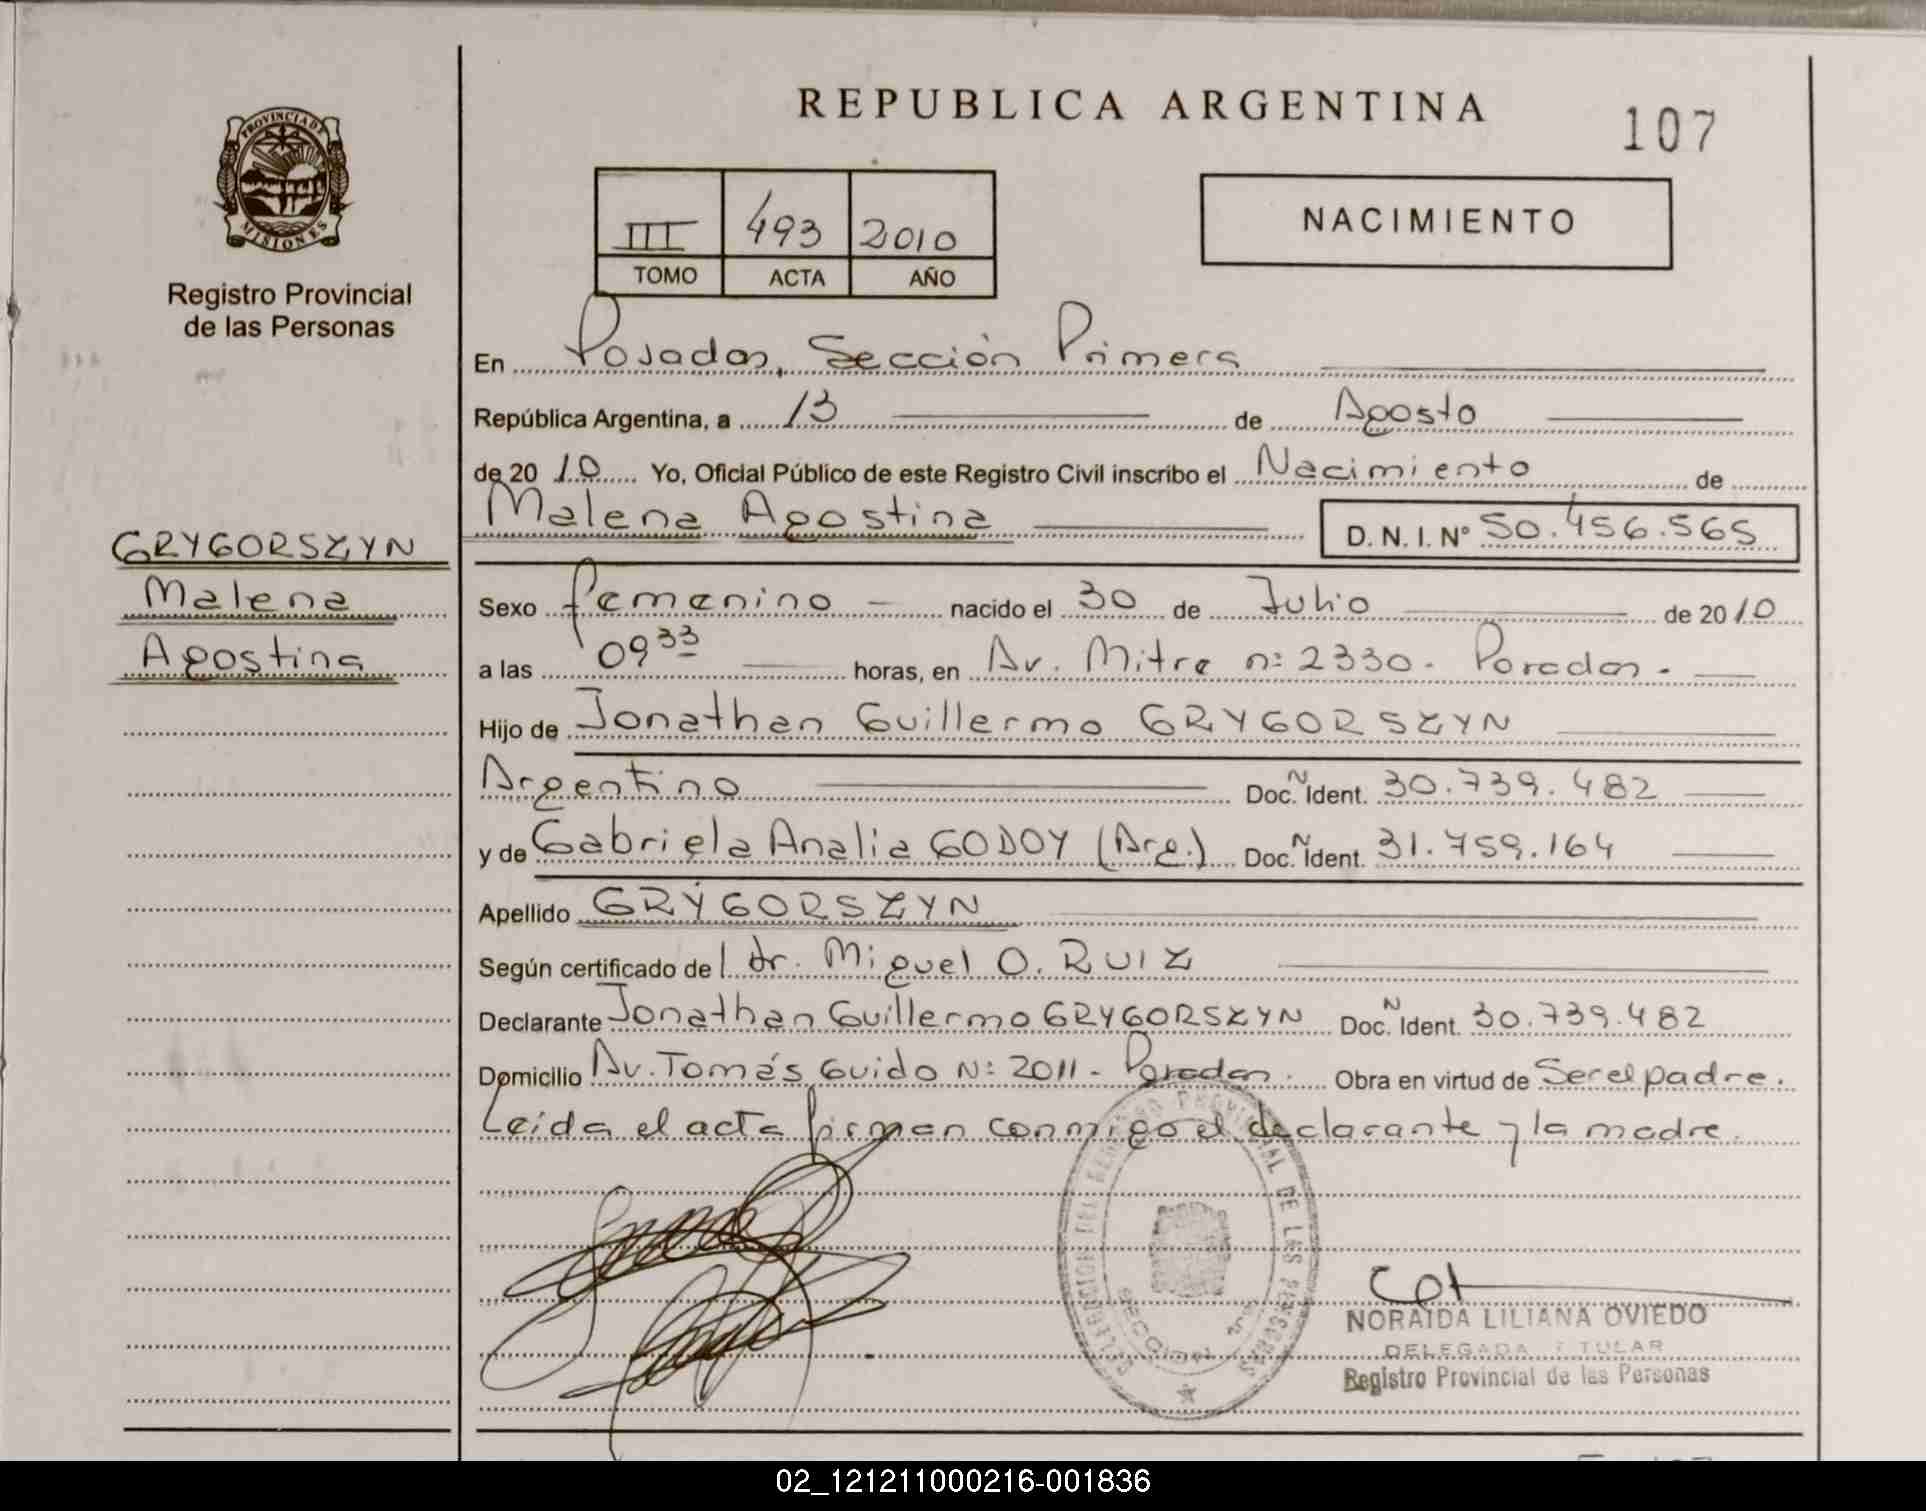 REPUBLICA ARGENTINA
107
PROVINCIA DE
MISIONES
Registro Provincial
de las Personas
III 493 2010
TOMO ACTA AÑO
NACIMIENTO
En Posadas, Sección Primera
República Argentina, a 13 de Agosto
de 2010 Yo, Oficial Público de este Registro Civil inscribo el Nacimiento de
Malena Agostina D. N. I. Nº 50.456.565
GRYGORSZYN
Malena
Agostina
Sexo femenino nacido el 30 de Julio de 2010
a las 09 33 horas, en Av. Mitre nº 2330. Posadas.
Hijo de Jonathan Guillermo GRYGORSZYN
Argentino Doc. N Ident. 30.739.482
y de Gabriela Analia GODOY (Arg.) Doc. N Ident. 31.759.164
Apellido GRYGORSZYN
Según certificado del dr. Miguel O. RUIZ
Declarante Jonathan Guillermo GRYGORSZYN Doc. N Ident. 30.739.482
Domicilio Av. Tomás Guido Nº 2011 - Posadas. Obra en virtud de Ser el padre.
Leída el acta firman conmigo el declarante y la madre.
DELEGACION DEL REGISTRO PROVINCIAL DE LAS PERSONAS
NORAIDA LILIANA OVIEDO
DELEGADA TITULAR
Registro Provincial de las Personas
02_121211000216-001836